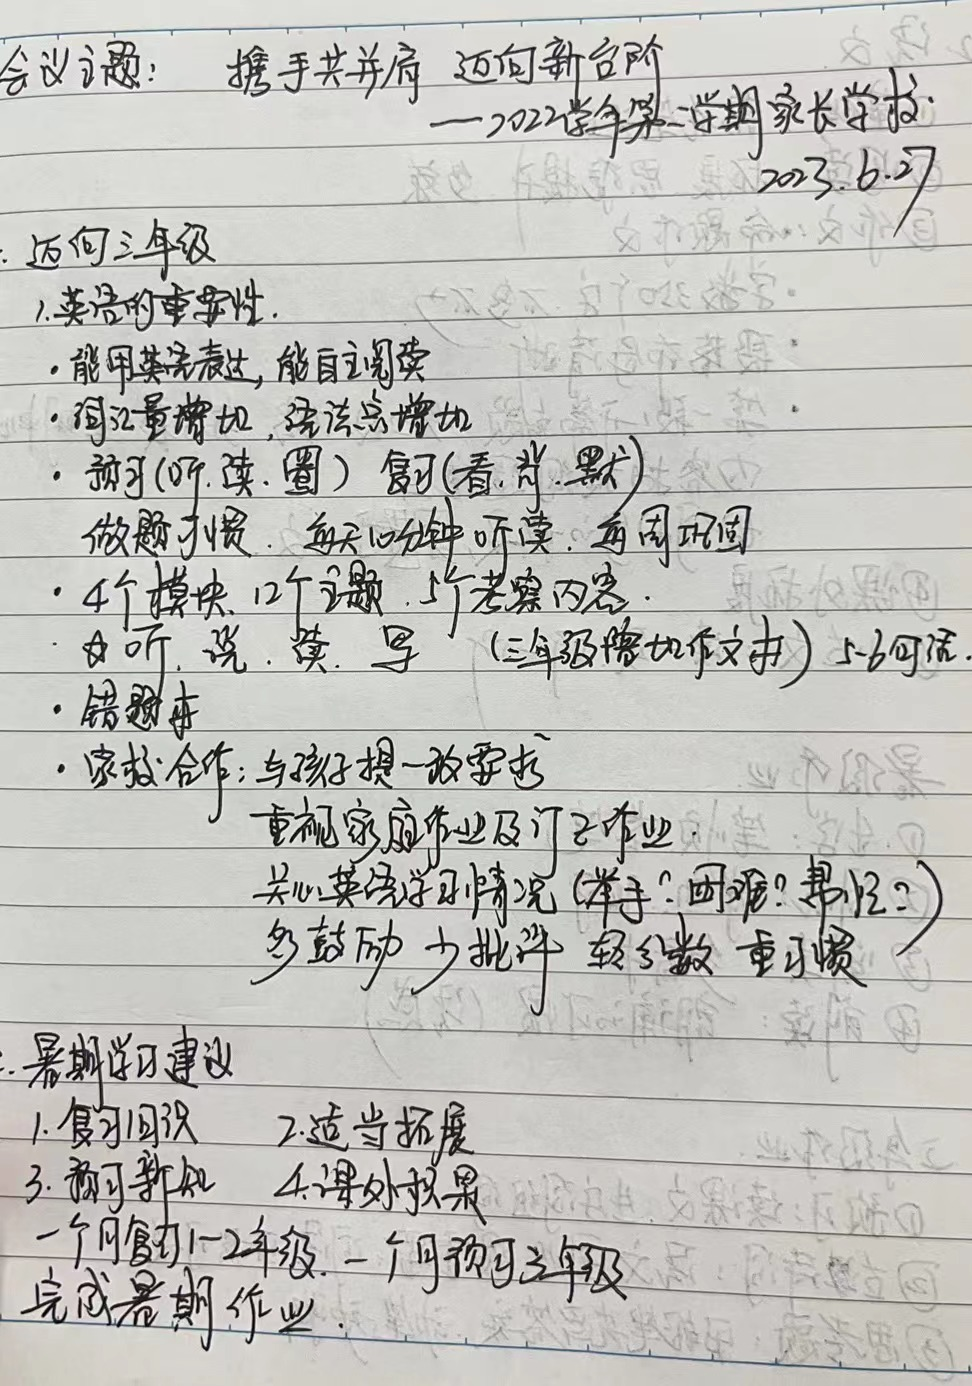 会议主题： 携手共并肩 迈向新台阶
——2022学年第二学期家长学校
2023.6.27
迈向三年级
1.英语的重要性.
·能用英语表达,能自主阅读
·词汇量增加,语法点增加
·预习(听.读.圈) 复习(看.背.默)
做题习惯.每天10分钟听读.每周巩固
·4个模块、12个主题.5个考察内容.
☆听.说.读.写 (三年级增加作文本) 5-6句话.
·错题本
·家校合作：与孩子提一致要求
重视家庭作业及订正作业.
关心英语学习情况(举手?困难?帮忙?)
多鼓励 少批评 轻分数 重习惯
暑期学习建议
1.复习旧识 2.适当拓展
3.预习新知 4.课外积累
一个月复习1-2年级.一个月预习三年级
完成暑期作业.